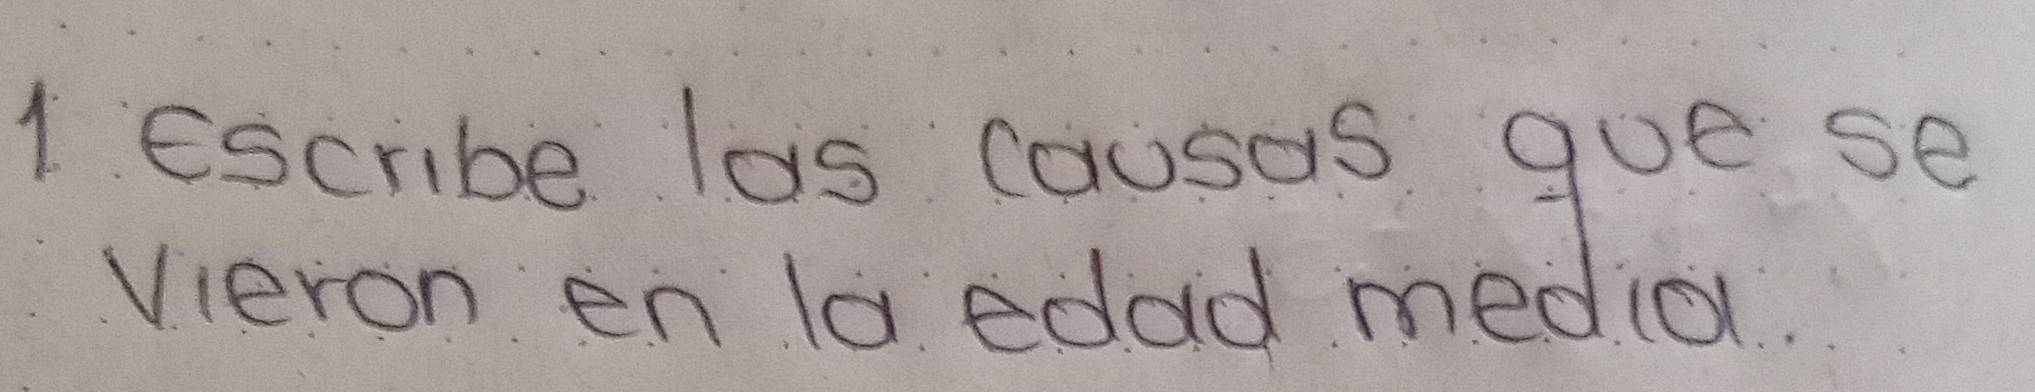 1 Escribe las causas que se
vieron en la edad media.